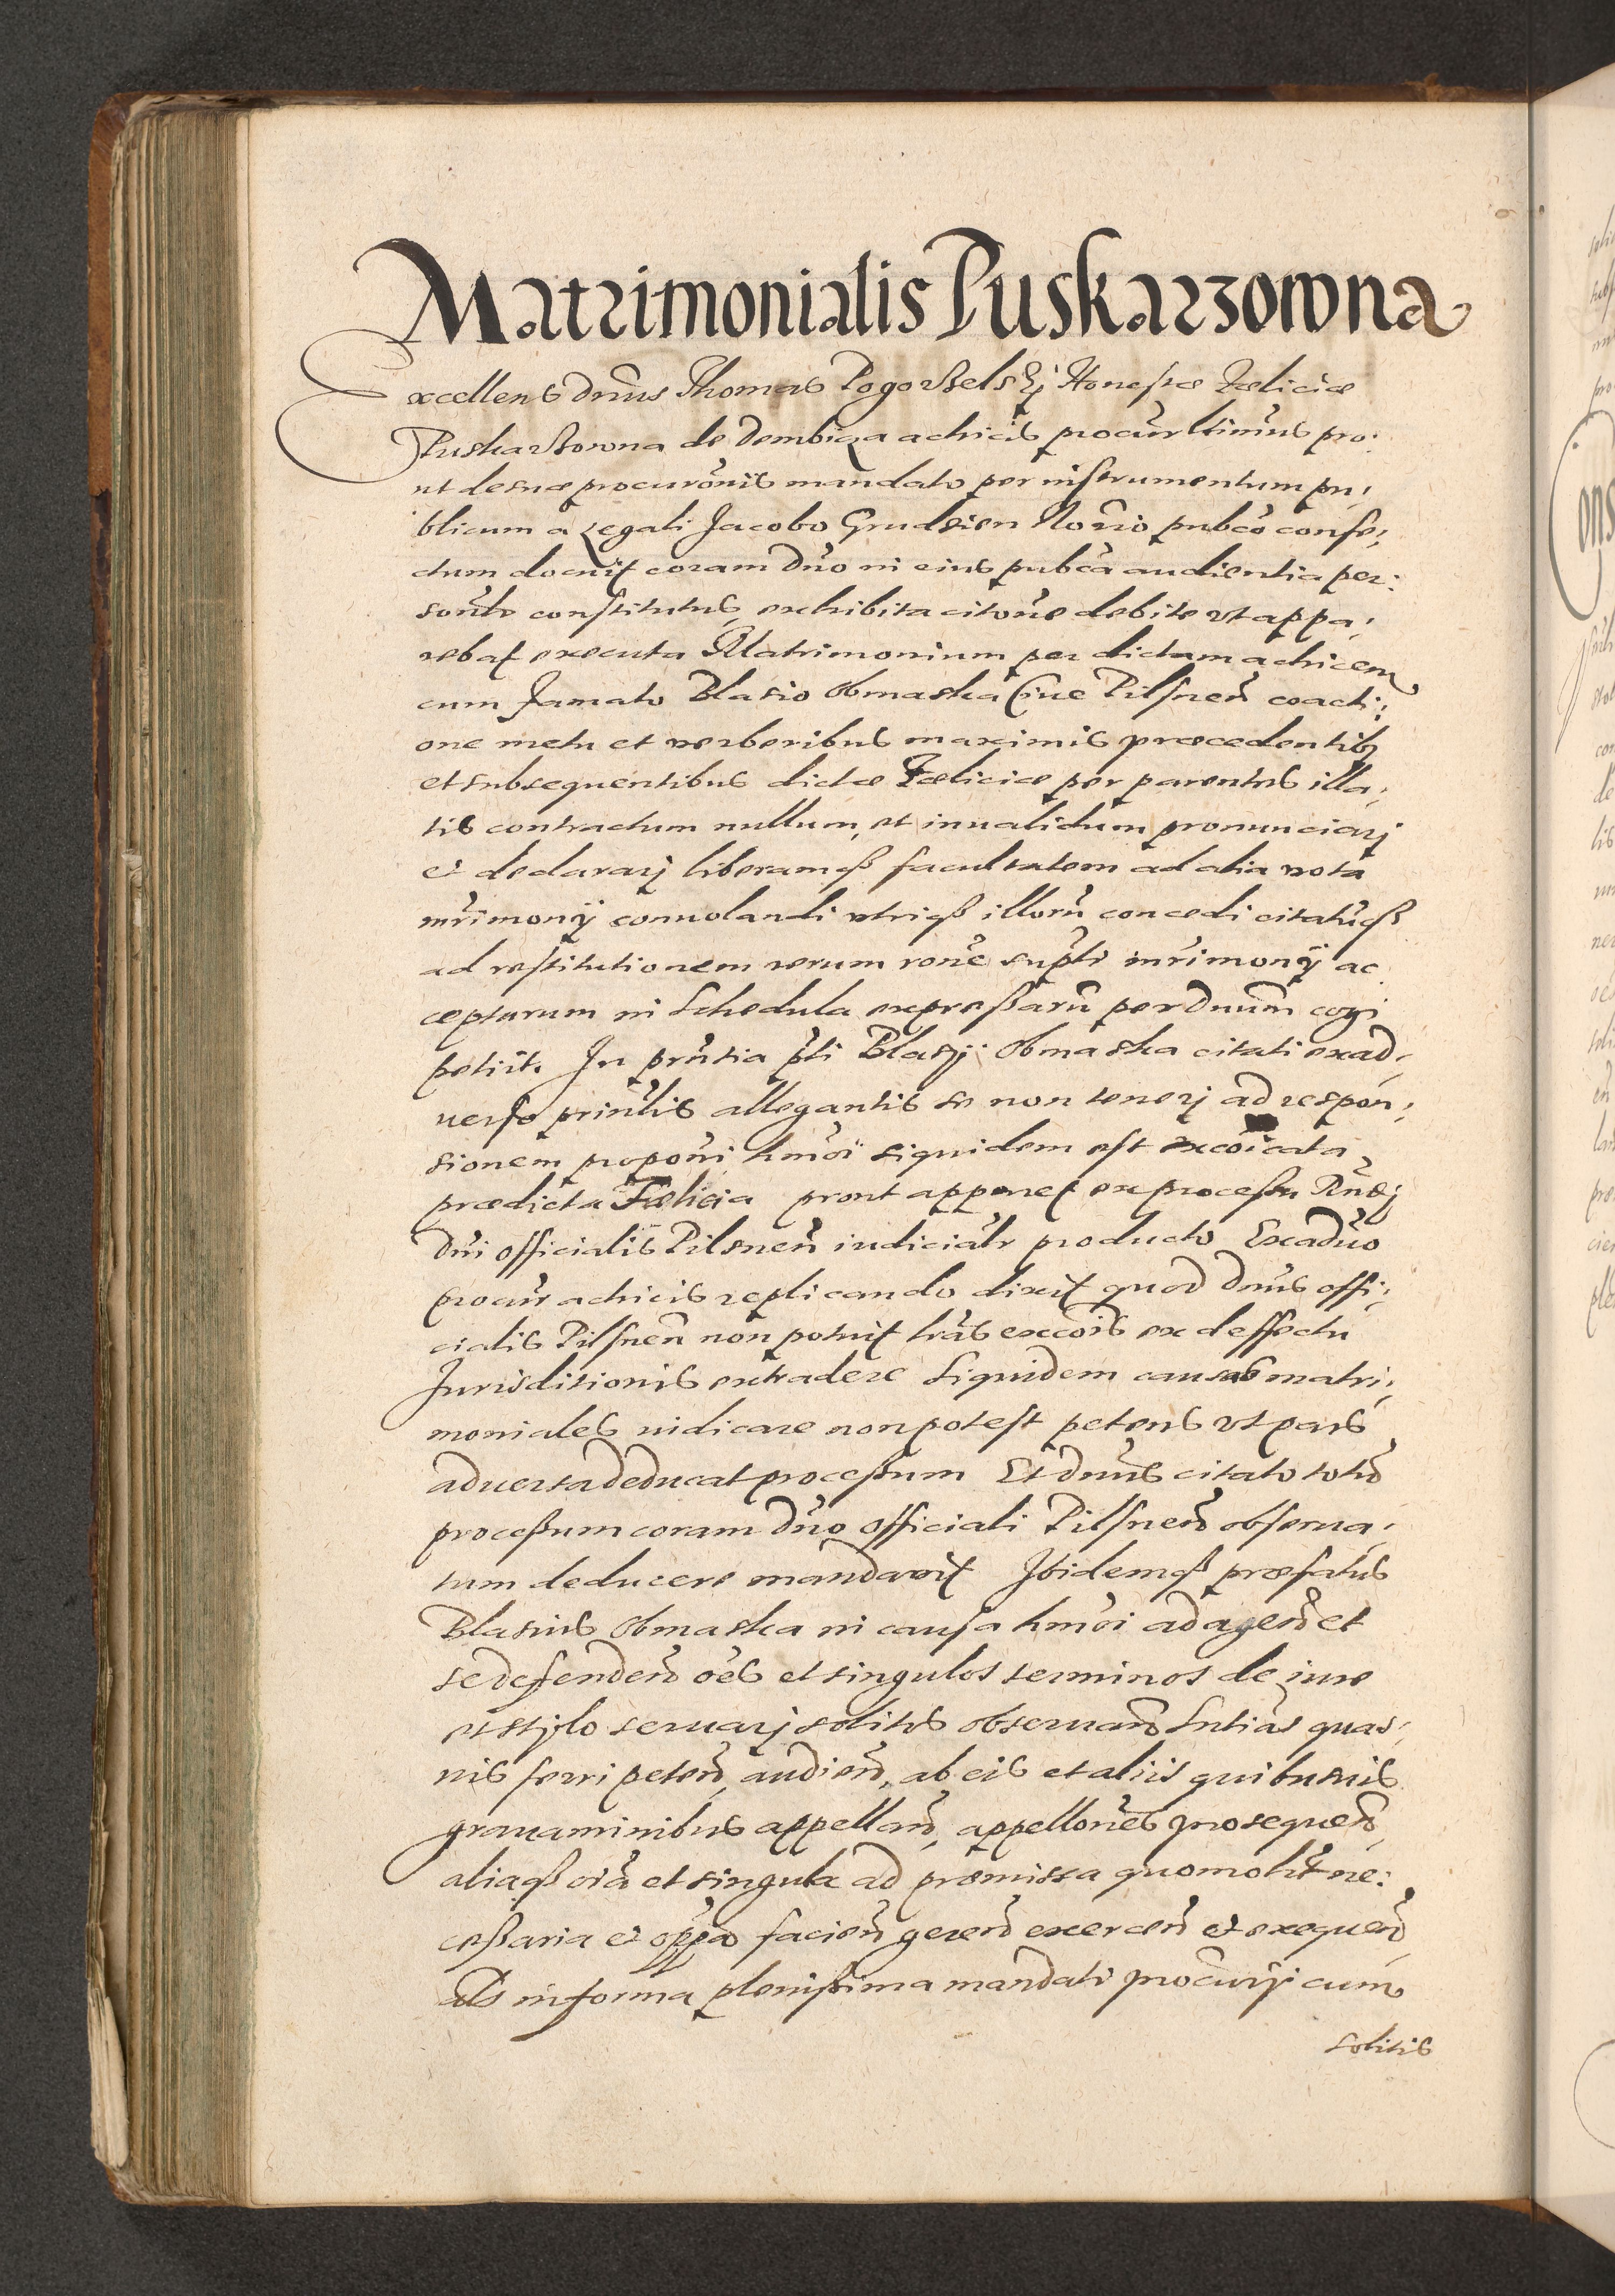 Matrimonialis Puskarzowna
Excellens dn̄us Thomas Pogorzelskj Honestæ Fæliciæ
Puskarzowna de Dembicza actricis procur̄ ltimus pro:
ut de suæ procur̄onis mandato per instrumentum pu,
blicum a Legali Jacobo Grudzien No͞rio pubco confe,
ctum docuit coram Dn̄o in eius pubca audientia per:
son̄lr constitutus, exhibita cito͞ne debite vt appa,
rebat executa Matrimonium per dictam actricem
cum famato Blasio Obmaska Ciue Pilsnen̄ coacti,
one metu et verberibus maximis præcedentib9
et subsequentibus dictæ Fæliciæ per parentes illa,
tis contractum nullum, et inualidum pronunciarj
et declararj liberamq3 facultatem ad alia vota
mr̄imonÿ conuolandi utriq3 illoru͞ concedi citatu͞q3
ad restitutionem rerum ro͞ne sup̄ti mr̄imonÿ ac
cepturum in Schedula expressaru͞ per Dnu͞m cogi
petiit. In pn̄tia p̄ti Blasÿ Obmaska citati ex ad,
uerso prin̄lis allegantis se non tenerj ad respon,
sionem propo͞ni hmo͞i siquidem est exco͞icata
prædicta Fælicia prout apparet ex processu Rn̄dj
Dn̄i officialis Pilsnen̄ iudicial̄r producto Ex aduo
procur̄ actricis replicando dixit quod dnus offi,
cialis Pilsnen̄ non potuit lr̄as exco͞is ex deffectu
Jurisditionis extradere siquidem causas matri,
moniales iudicare non potest petens vt pars
aduersa deducat processum Et dnus citato totu͞
processum coram Dn̄o officiali Pilsnen̄ obserua,
tum deducere mandauit Ibidemq3 præfatus
Blasius Obmaska in causa hmo͞i ad agend̄ et
se defendend̄ o͞es et singulos terminos de iure
et stylo seruarj solitos obseruand̄ sn̄tias quas,
uis ferri petend̄, audiend̄, ab eis et aliis quibusuis
grauaminibus appelland̄, appello͞nes prosequend̄
aliaq3 o͞ia et singula ad præmissa quomolt ne:
cessaria et opp̄a faciend̄ gerend̄ exercend̄ et exequend̄
als in forma plenissima mandati procur̄ÿ cum
solitis